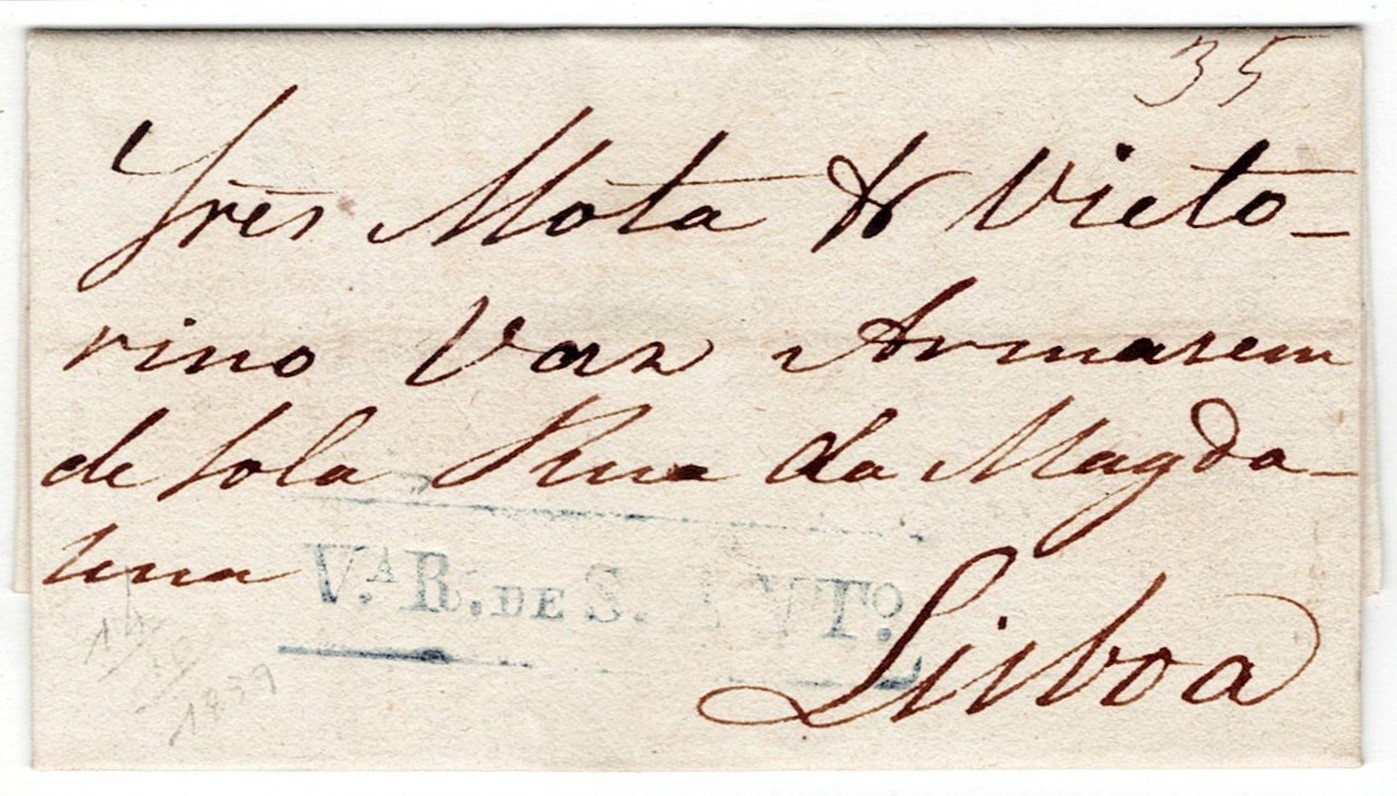 35
Srēs Mota & Victo-
rino Vaz Armasem
de Sola Rua da Magda-
lena
V.ᴬ R. DE S. A VT.º
Lisboa
1839